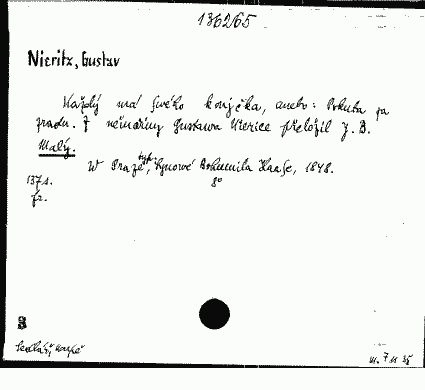 136265
Nieritz, Gustav
Každý má svého konjčka, anebo: Pokuta za
zradu. Z němčiny Gustawa Nierice přeložil J. B.
Malý.
W Praze, typ. Synowé Bohumila Haase, 1848.
137 s. 8°
fr.